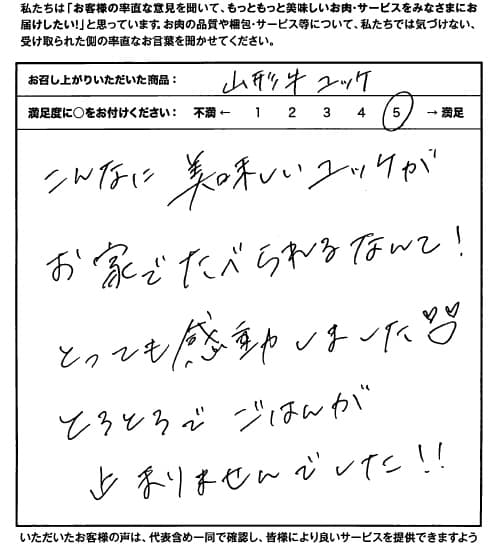 私たちは「お客様の率直な意見を聞いて、もっともっと美味しいお肉・サービスをみなさまにお
届けしたい！」と思っています。お肉の品質や梱包・サービス等について、私たちでは気づけない、
受け取られた側の率直なお言葉を聞かせてください。
お召し上がりいただいた商品： 山形牛 ユッケ
満足度に○をお付けください： 不満 ← 1 2 3 4 5 → 満足
こんなに 美味しいユッケが
お家でたべられるなんて！
とっても感動しました♡♡
とろとろで ごはんが
止まりませんでした！！
いただいたお客様の声は、代表含め一同で確認し、皆様により良いサービスを提供できますよう